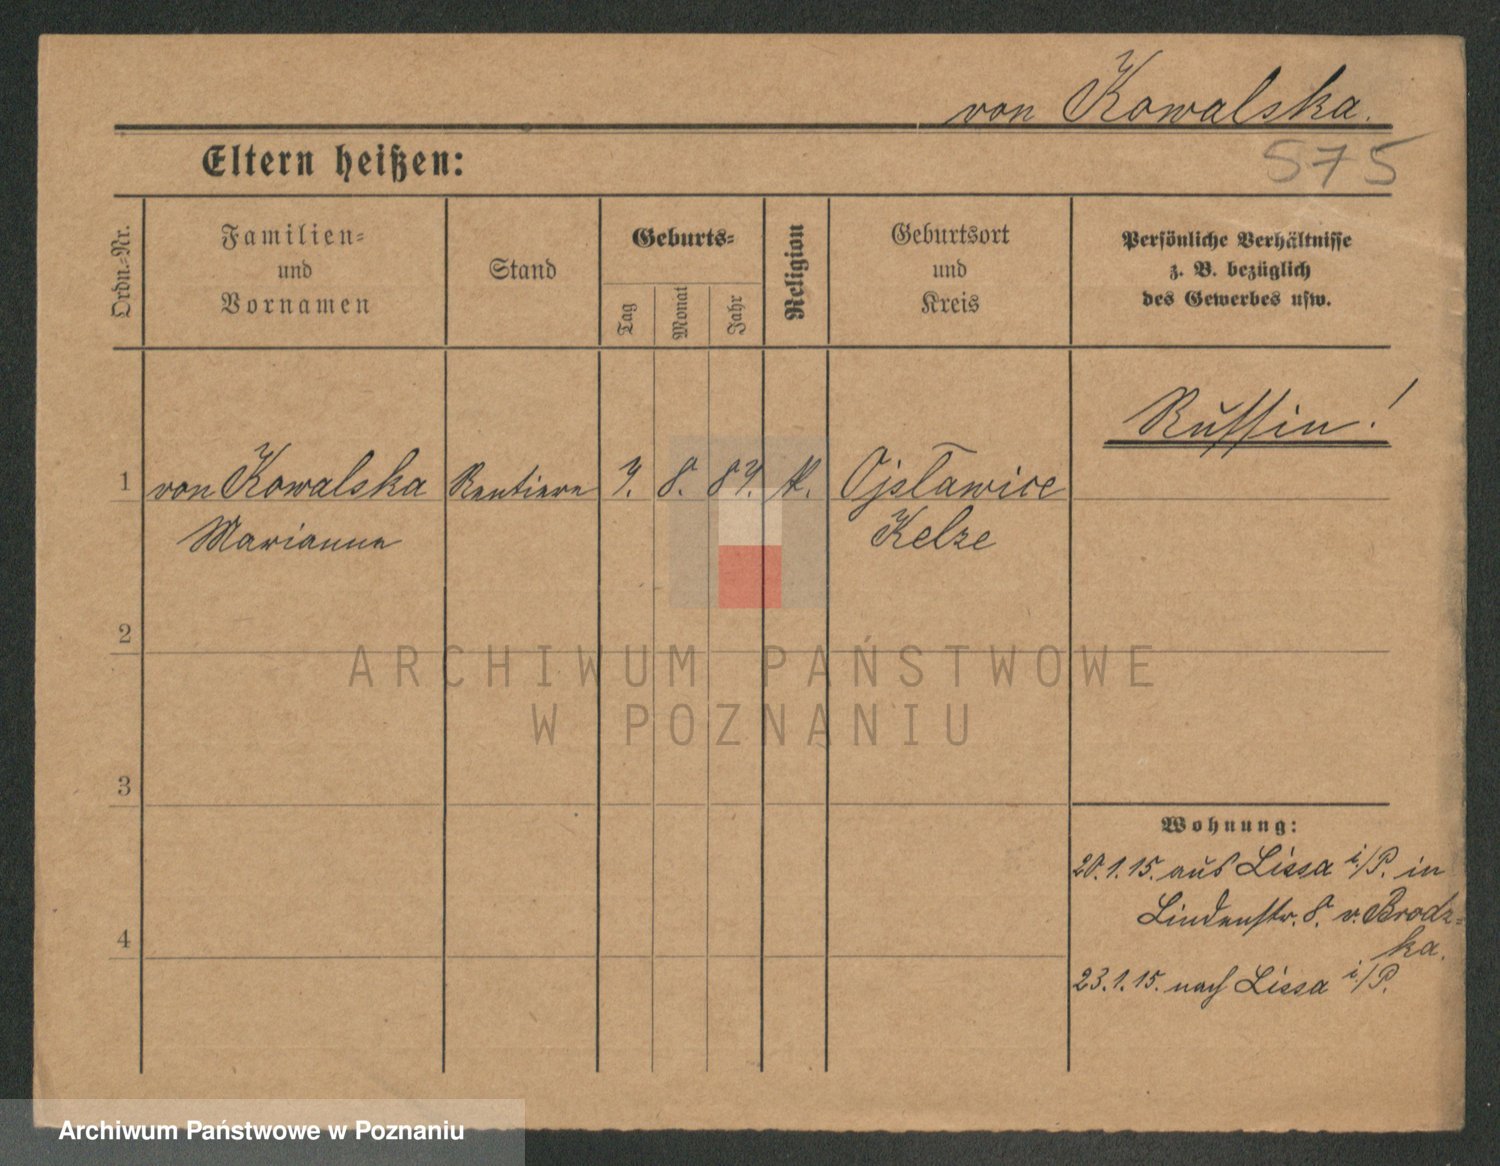 von Kowalska.
Eltern heißen:
575
Ordn.-Nr.
Familien-
und
Vornamen
Stand
Geburts-
Tag
Monat
Jahr
Religion
Geburtsort
und
Kreis
Persönliche Verhältnisse
z. B. bezüglich
des Gewerbes usw.
Russin!
1 von Kowalska Rentiere 8. k. Ojslawice
Marianna Kelze
2
ARCHIWUM PAŃSTWOWE
W POZNANIU
3
Wohnung:
20.1.15. aus Lissa i/P. in
Lindenstr. 8. v. Brodz-
ka.
4
23.1.15. nach Lissa i/P.
Archiwum Państwowe w Poznaniu